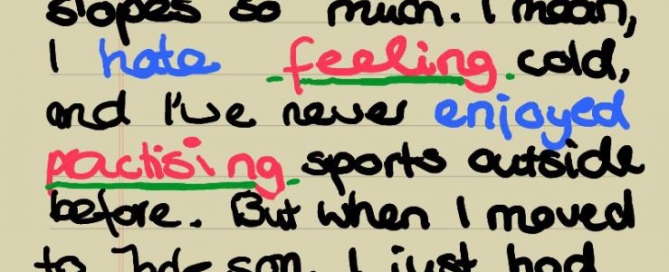 slopes so much. I mean,
I hate feeling cold,
and I've never enjoyed
practising sports outside
before. But when I moved
to son, I just had